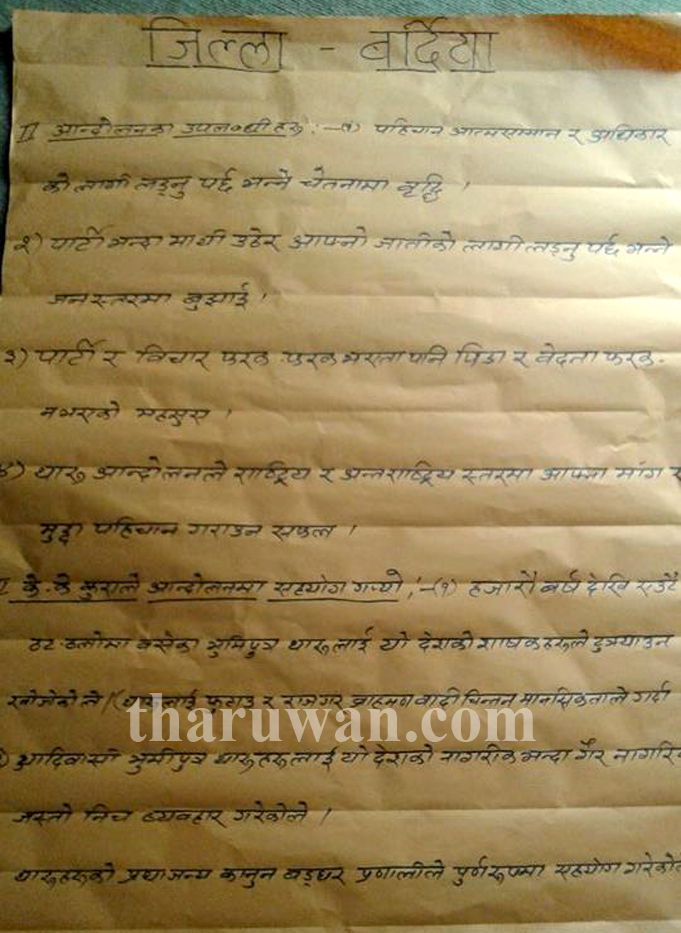 जिल्ला - बर्दिया
II आन्दोलनका उपलब्धीहरु :- (१) पहिचान आत्मसामान र अधिकार
को लागी लड्नु पर्छ भन्ने चेतनामा बृद्धि ।
२) पार्टी भन्दा माथी उठेर आफ्नो जातीको लागी लड्नु पर्छ भन्ने
जनस्तरमा बुझाई ।
३) पार्टी र विचार फरक फरक भएता पनि पिडा र वेदना फरक
नभएको महसुस ।
४) थारु आन्दोलनले राष्ट्रिय र अन्तराष्ट्रिय स्तरमा आफ्ना मांग र
मुद्दा पहिचान गराउन सफल ।
के-के कुराले आन्दोलनमा सहयोग गर्‍यो :- (१) हजारौं बर्ष देखि एउटै
ठलोमा बसेका भुमिपुत्र थारुलाई यो देशको शाषकहरुले टुक्रयाउन
खोजेकोले । (थारुलाई फुटाउ र राजगर ब्राहमणवादी चिन्तन मानसिकताले गर्दा
tharuwan.com
) आदिवासी भुमीपुत्र थारुहरुलाई यो देशको नागरीक भन्दा गैर नागरिक
जस्तो निच ब्यवहार गरेकोले ।
थारुहरुको प्रथाजन्य कानुन बड्घर प्रणालीले पुर्णरुपमा सहयोग गरेकोले